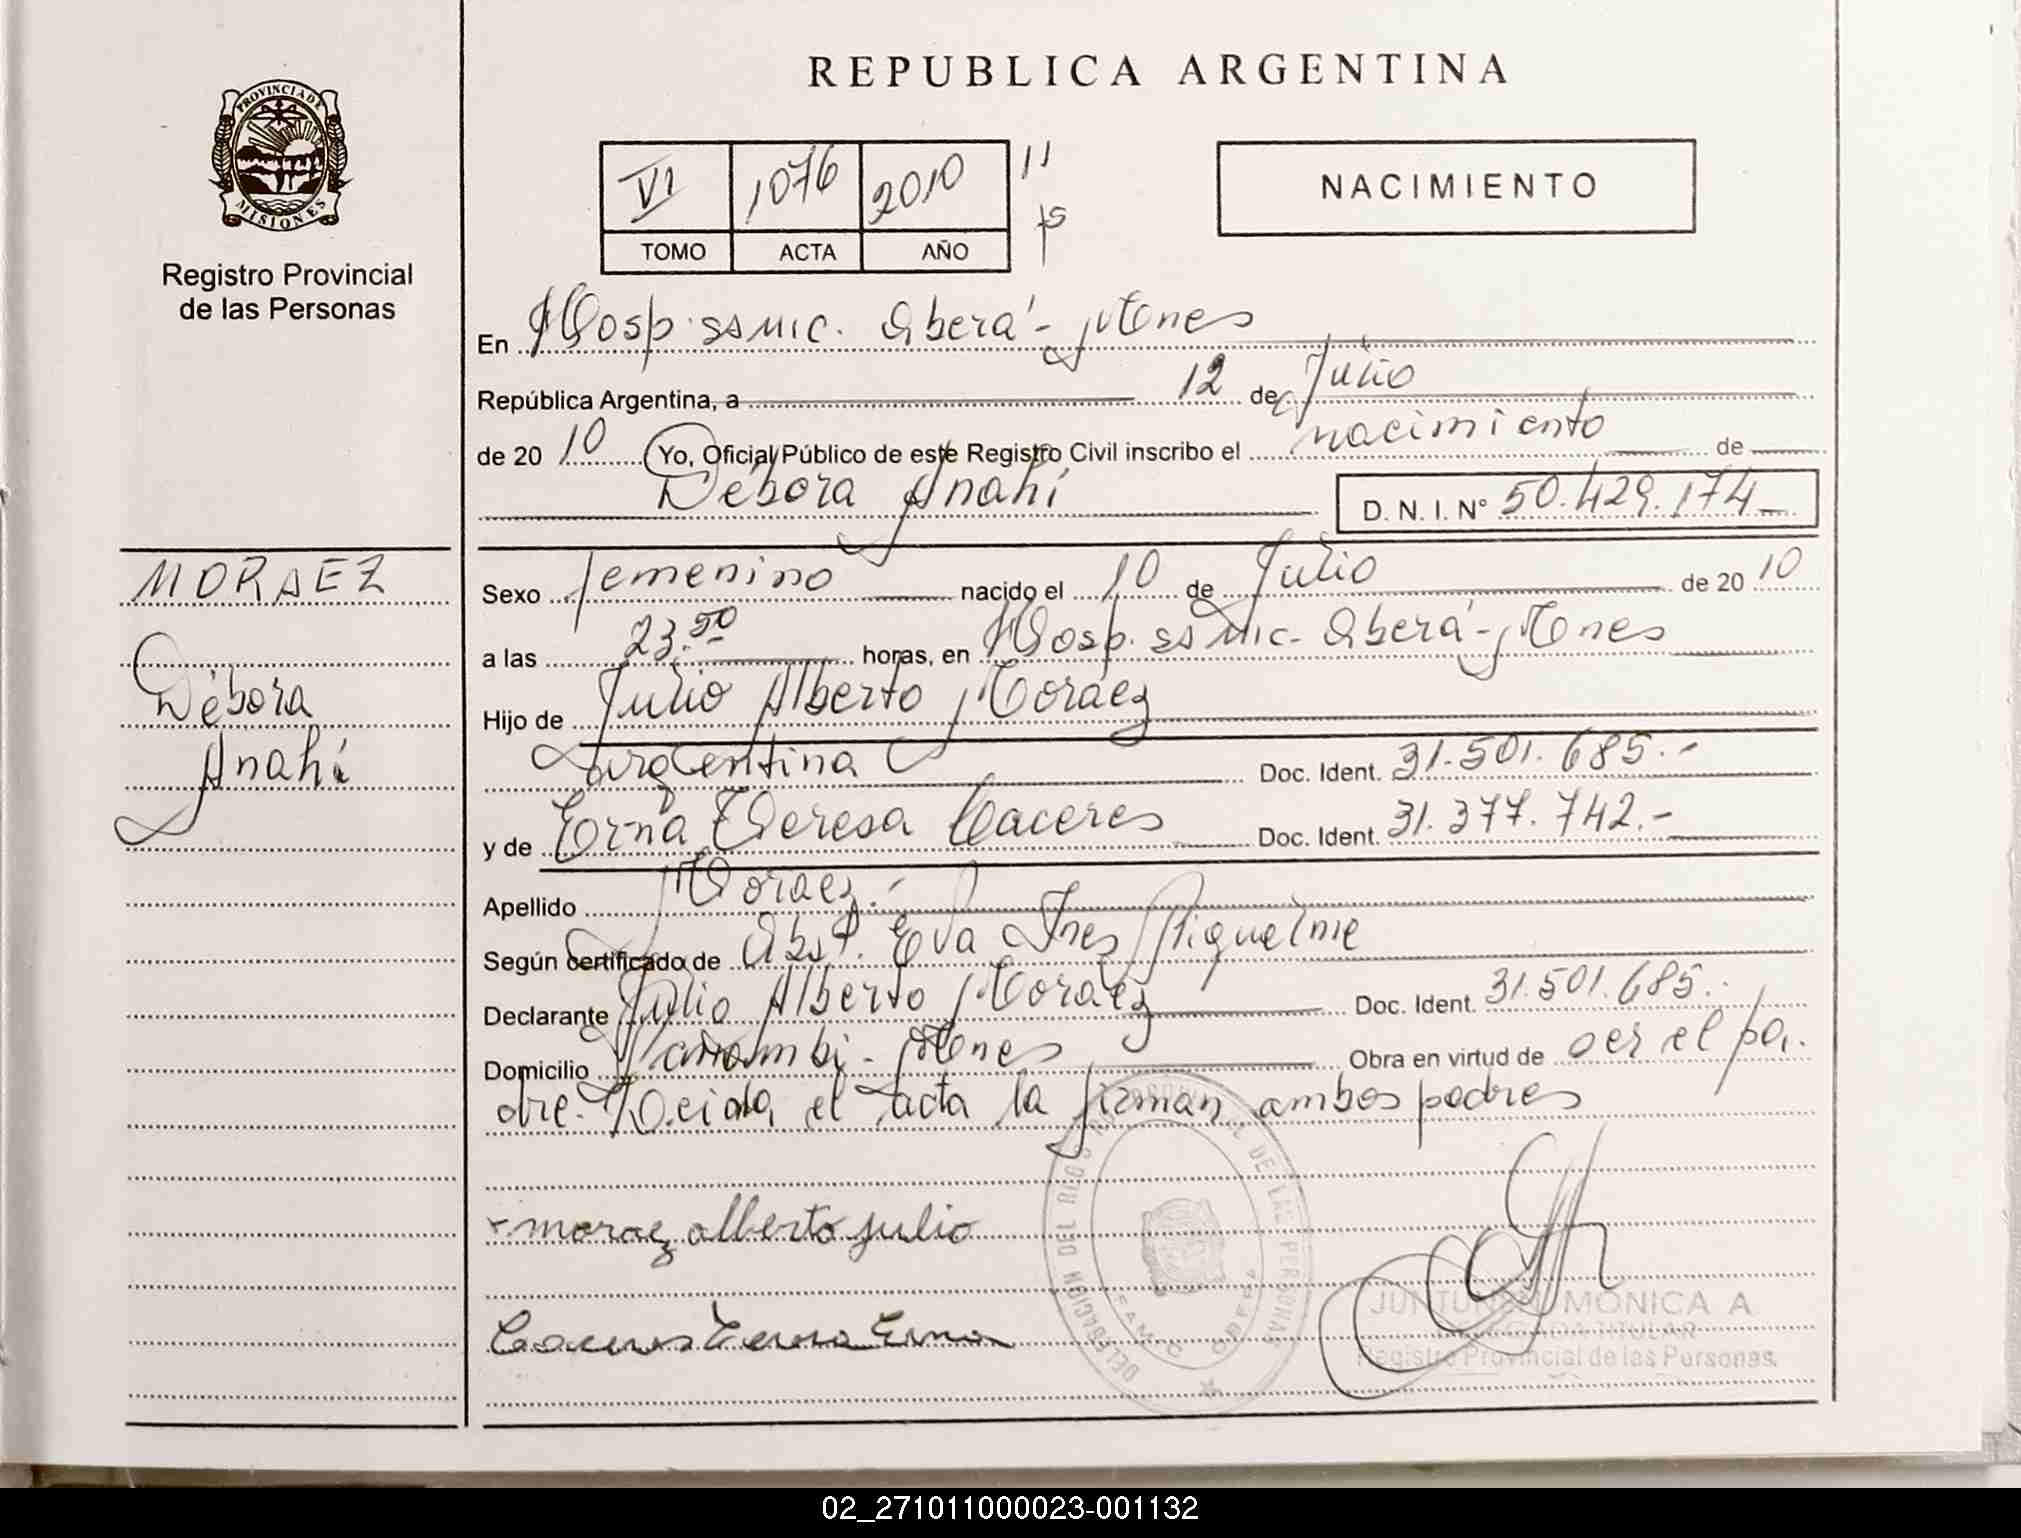 REPUBLICA ARGENTINA
PROVINCIA DE
MISIONES
Registro Provincial
de las Personas
VI 1076 2010 11
TOMO ACTA AÑO
NACIMIENTO
En Hosp. ss mic. Oberá - Mones
República Argentina, a 12 de Julio
de 2010 Yo, Oficial Público de este Registro Civil inscribo el nacimiento de
Débora Anahí D. N. I. N° 50.429.174
MORAEZ
Débora
Anahí
Sexo femenino nacido el 10 de Julio de 2010
a las 23.50 horas, en Hosp. ss mic - Oberá - Mones
Hijo de Julio Alberto Moraez
Argentina Doc. Ident. 31.501.685.-
y de Erna Teresa Caceres Doc. Ident. 31.377.742.-
Apellido Moraez.-
Según certificado de Obst. Eva Ines Riquelme
Declarante Julio Alberto Moraez Doc. Ident. 31.501.685.
Domicilio Panambi - Mones Obra en virtud de ser el pa-
dre. Leida el acta la firman ambos padres
moraez alberto julio
Caceres Teresa Erna
DELEGACION DEL REG. DE LAS PERSONAS
MONICA A
DELEGADA TITULAR
Registro Provincial de las Personas.
02_271011000023-001132